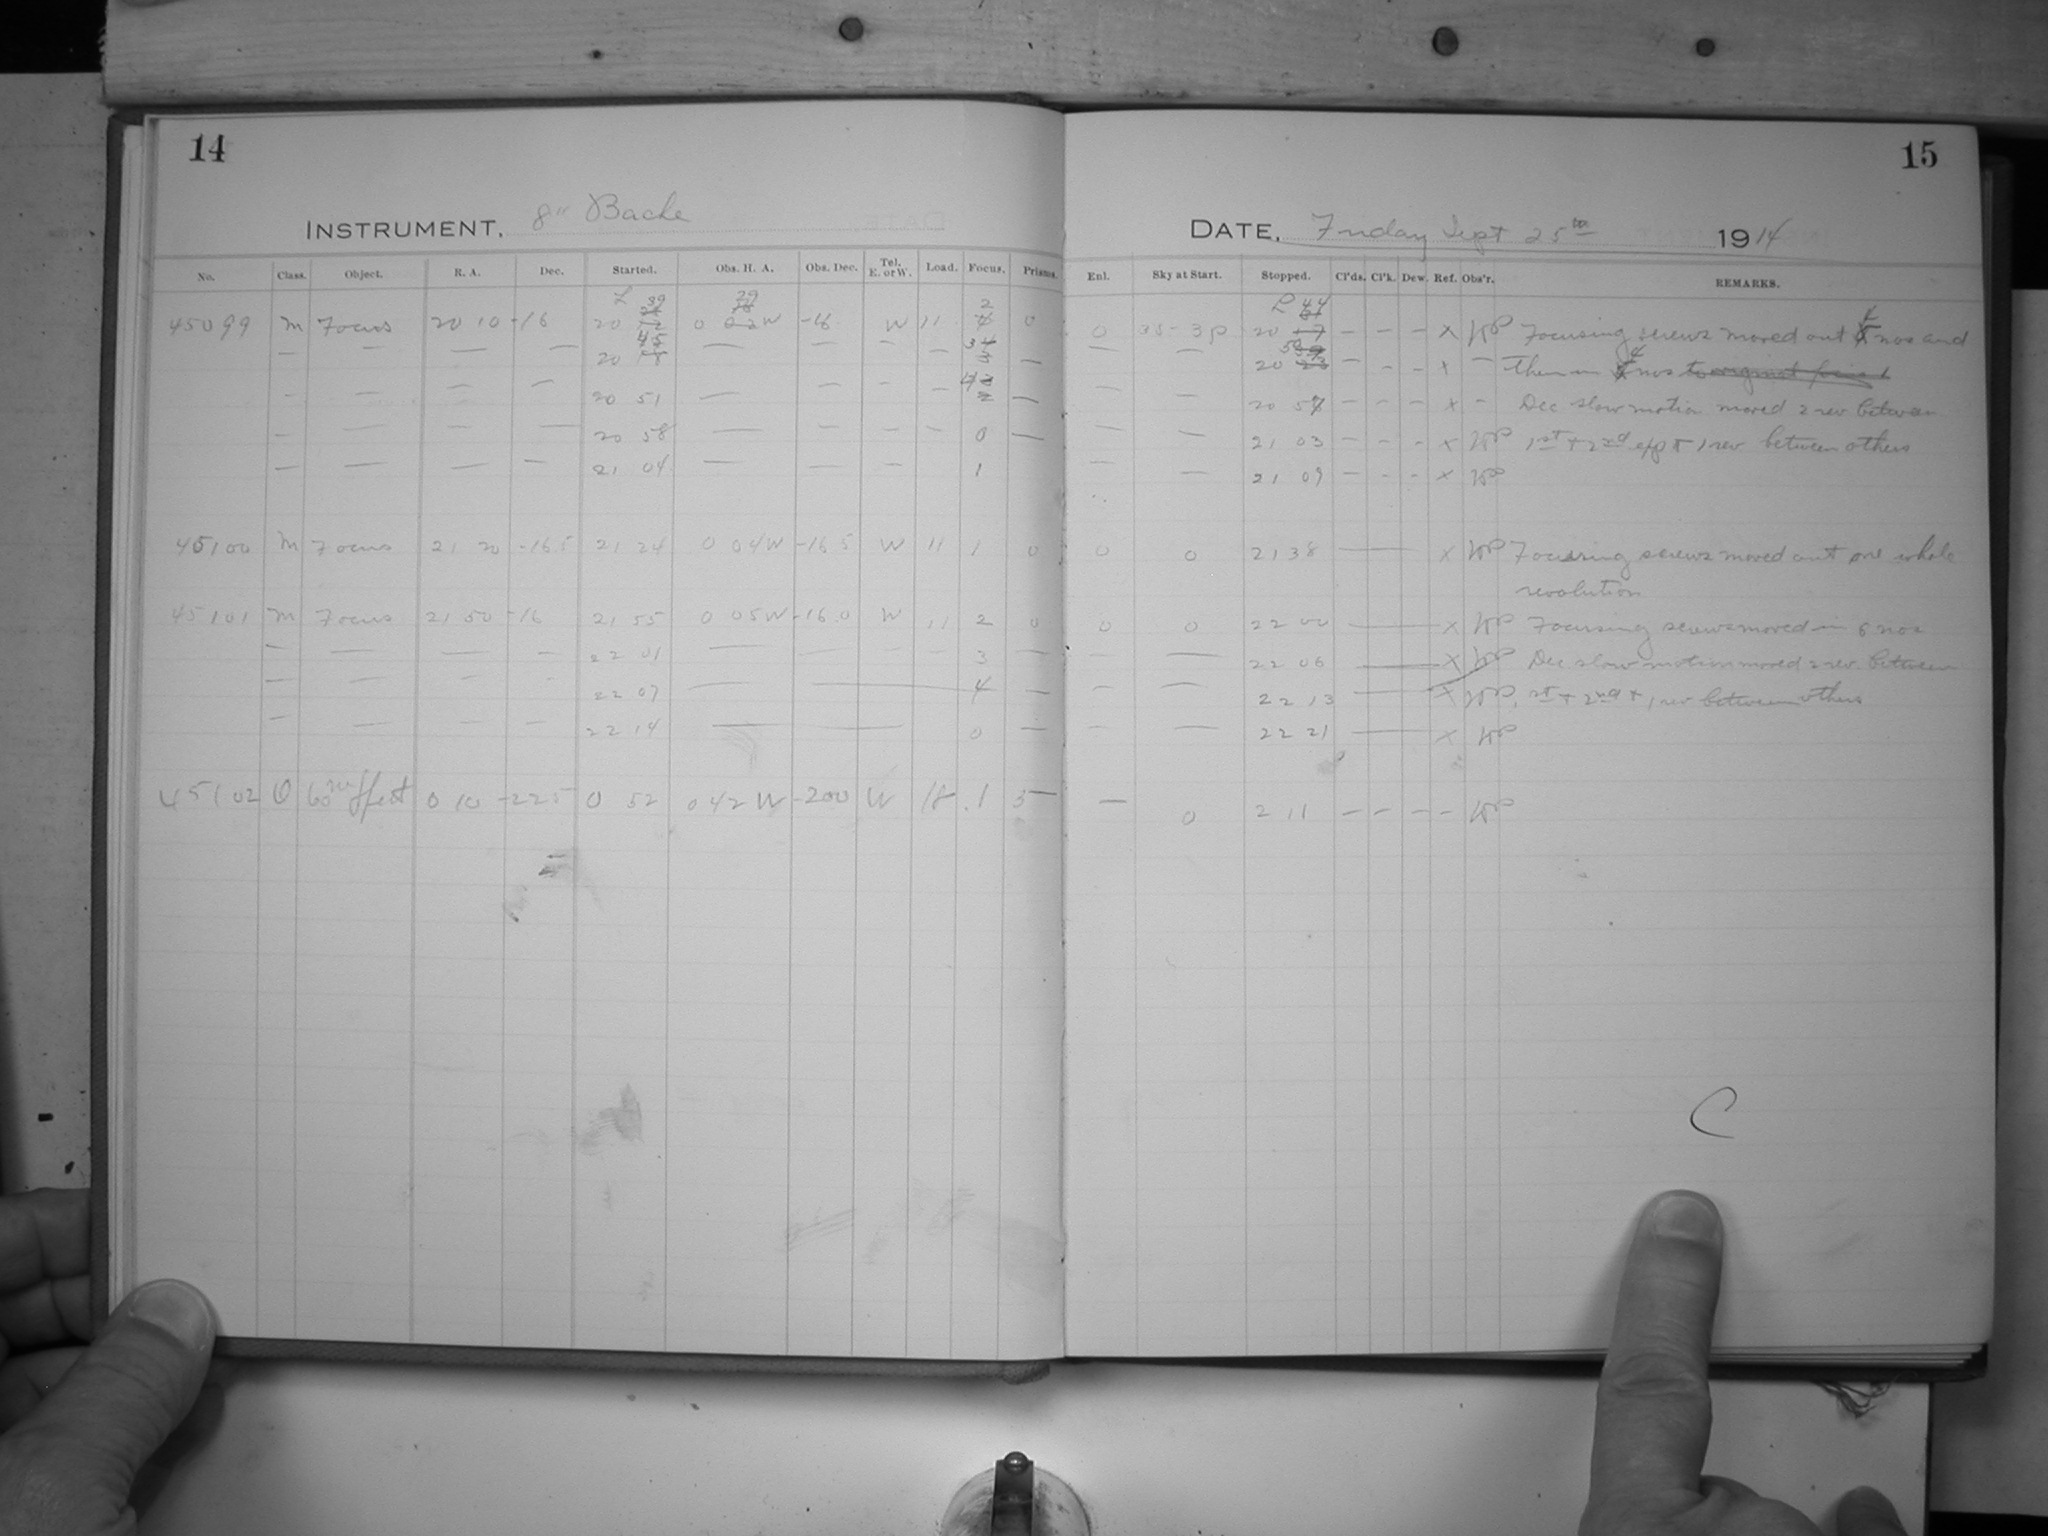 14
15
INSTRUMENT. 8" Bache
DATE, Friday Sept 25th 1914
No. Class. Object. R. A. Dec. Started. Obs. H. A. Obs. Dec. Tel. E. or W. Load. Focus. Prisms. Enl. Sky at Start. Stopped. Cl'ds. Cl'k. Dew. Ref. Obs'r. REMARKS.
45099 M Focus 20 10 -16 20 39 0 29 W -16 W 11 2 0 0 20 44 — — — x Focusing screws moved out 4 nos and
— — — — 20 45 — — — — 3 — — — 20 50 — — — x — then in 4 nos to original focus 1
— — — — 20 51 — — — — 4 — — — 20 57 — — — x — Dec slow motion moved 2 rev between
— — — — 20 58 — — — — 0 — — — 21 03 — — — x 1st + 2nd exp + 1 rev between others
— — — — 21 04 — — — 1 — — 21 09 — — — x
45100 M Focus 21 20 -16.5 21 24 0 04 W -16 5 W 11 1 0 0 0 21 38 — x Focusing screws moved out one whole
revolution
45101 M Focus 21 50 -16 21 55 0 05 W -16.0 W 11 2 0 0 0 22 00 — x Focusing screws moved in 6 nos
— — — — 22 01 — — — — 3 — — — 22 06 — x Dec slow motion moved 2 rev. between
— — — — 22 07 — — 4 — — — 22 13 — x 1st + 2nd + 1 rev between others
— — — — 22 14 — — 0 — — — 22 21 — x
45102 0 10 -22 5 0 52 0 42 W -20 0 W 18 .1 — — 0 2 11 — — — —
C